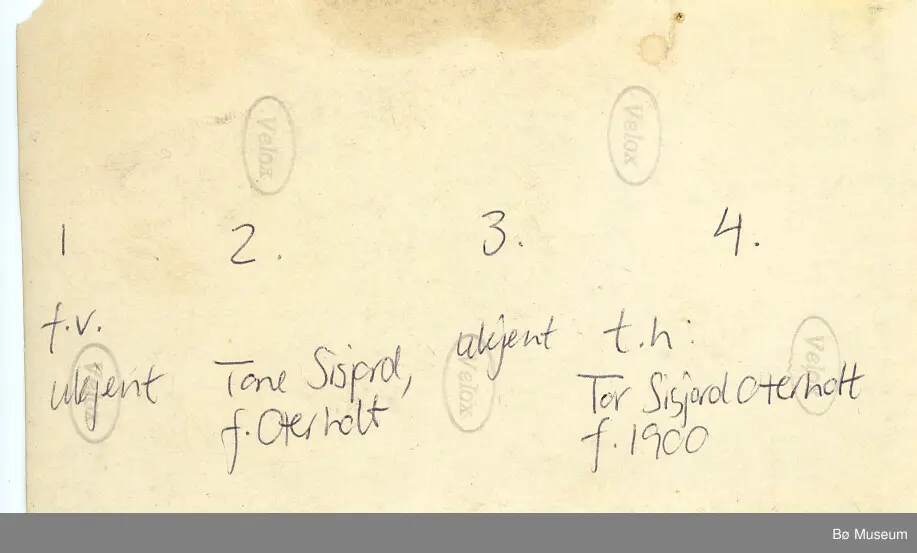 Velox Velox
1 2. 3. 4.
f.v. ukjent t.h:
ukjent Tone Sisjord, Tor Sisjord Oterholt
f. Oterholt f. 1900
Velox Velox Velox
Bø Museum